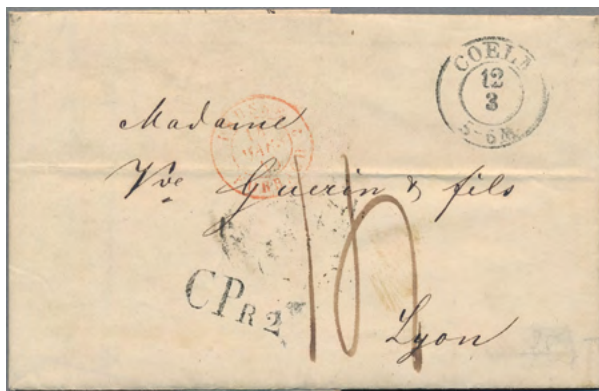 COELN
12
3
5-6 N.
Madame
Vve Guerin & fils
CPR2
Lyon